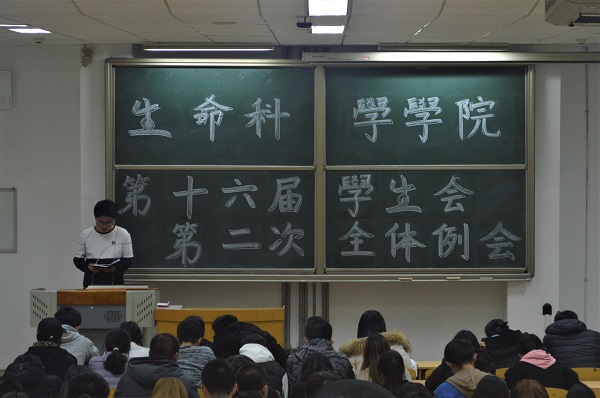 生命科學學院
第十六届學生会
第二次全体例会